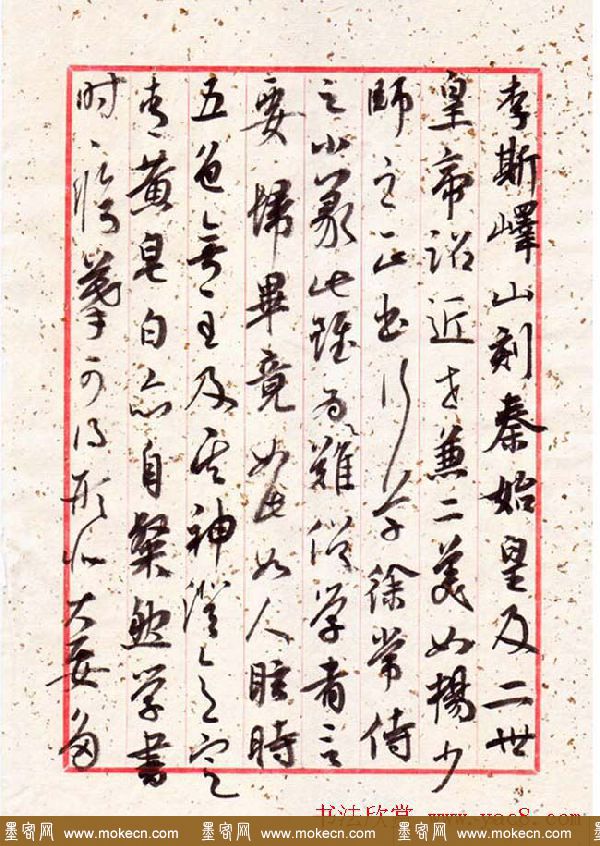 李斯嶧山刻秦始皇及二世
皇帝詔近世兼二美如楊少
師之正書行草徐常侍
之小篆此雖為難俗学者言
要歸畢竟如此如人眩時
五色無主及其神澄意定
青黄皂白亦自粲然学書
时时临摹可得形似大要多
书法欣赏 www.yac8.com
墨客网 www.mokecn.com 墨客网 www.mokecn.com 墨客网 www.mokecn.com